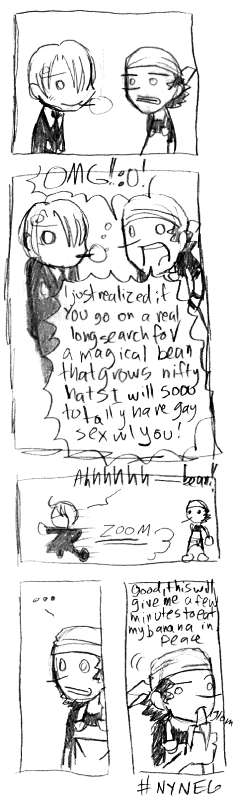 OMG!! :O!
I just realized if
you go on a real
long search for
a magical bean
that grows nifty
hats I will sooo
totally have gay
sex w/ you!
Ahhhhhh — bean!!
ZOOM
...
Good, this will
give me a few
minutes to eat
my banana in
peace
#NYNEG